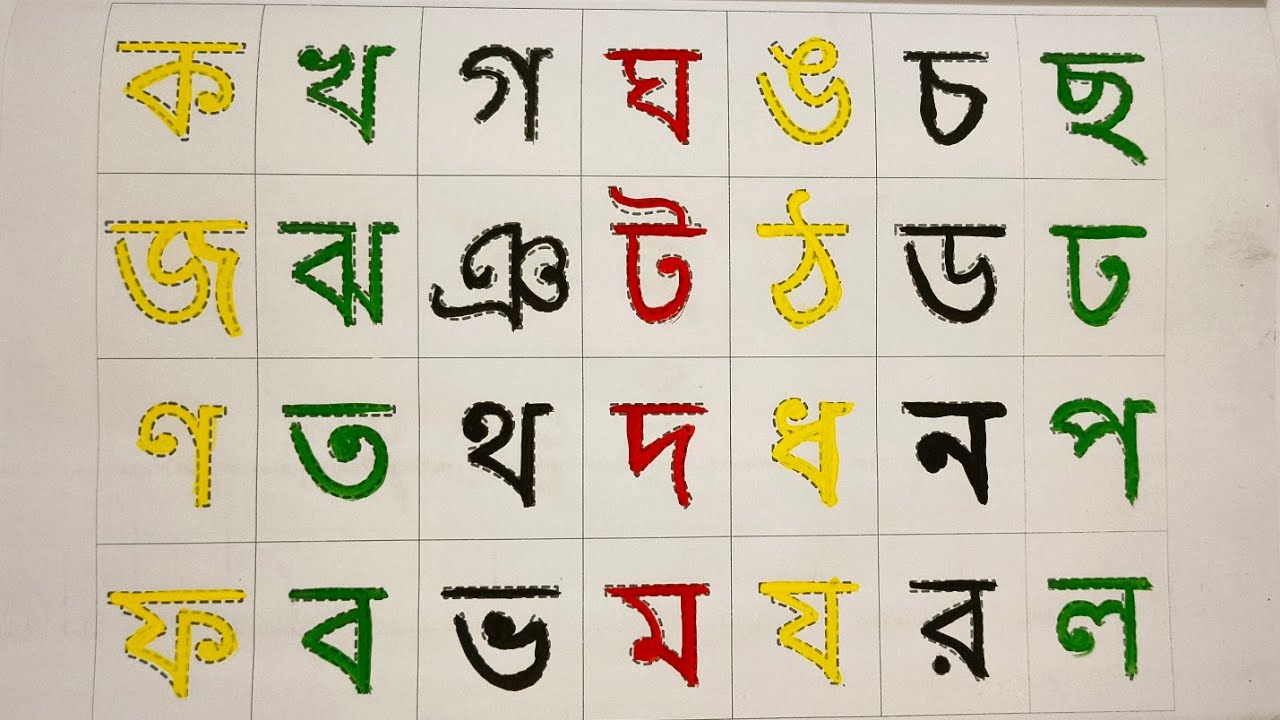 ক খ গ ঘ ঙ চ ছ
জ ঝ ঞ ট ঠ ড ঢ
ণ ত থ দ ধ ন প
ফ ব ভ ম য র ল